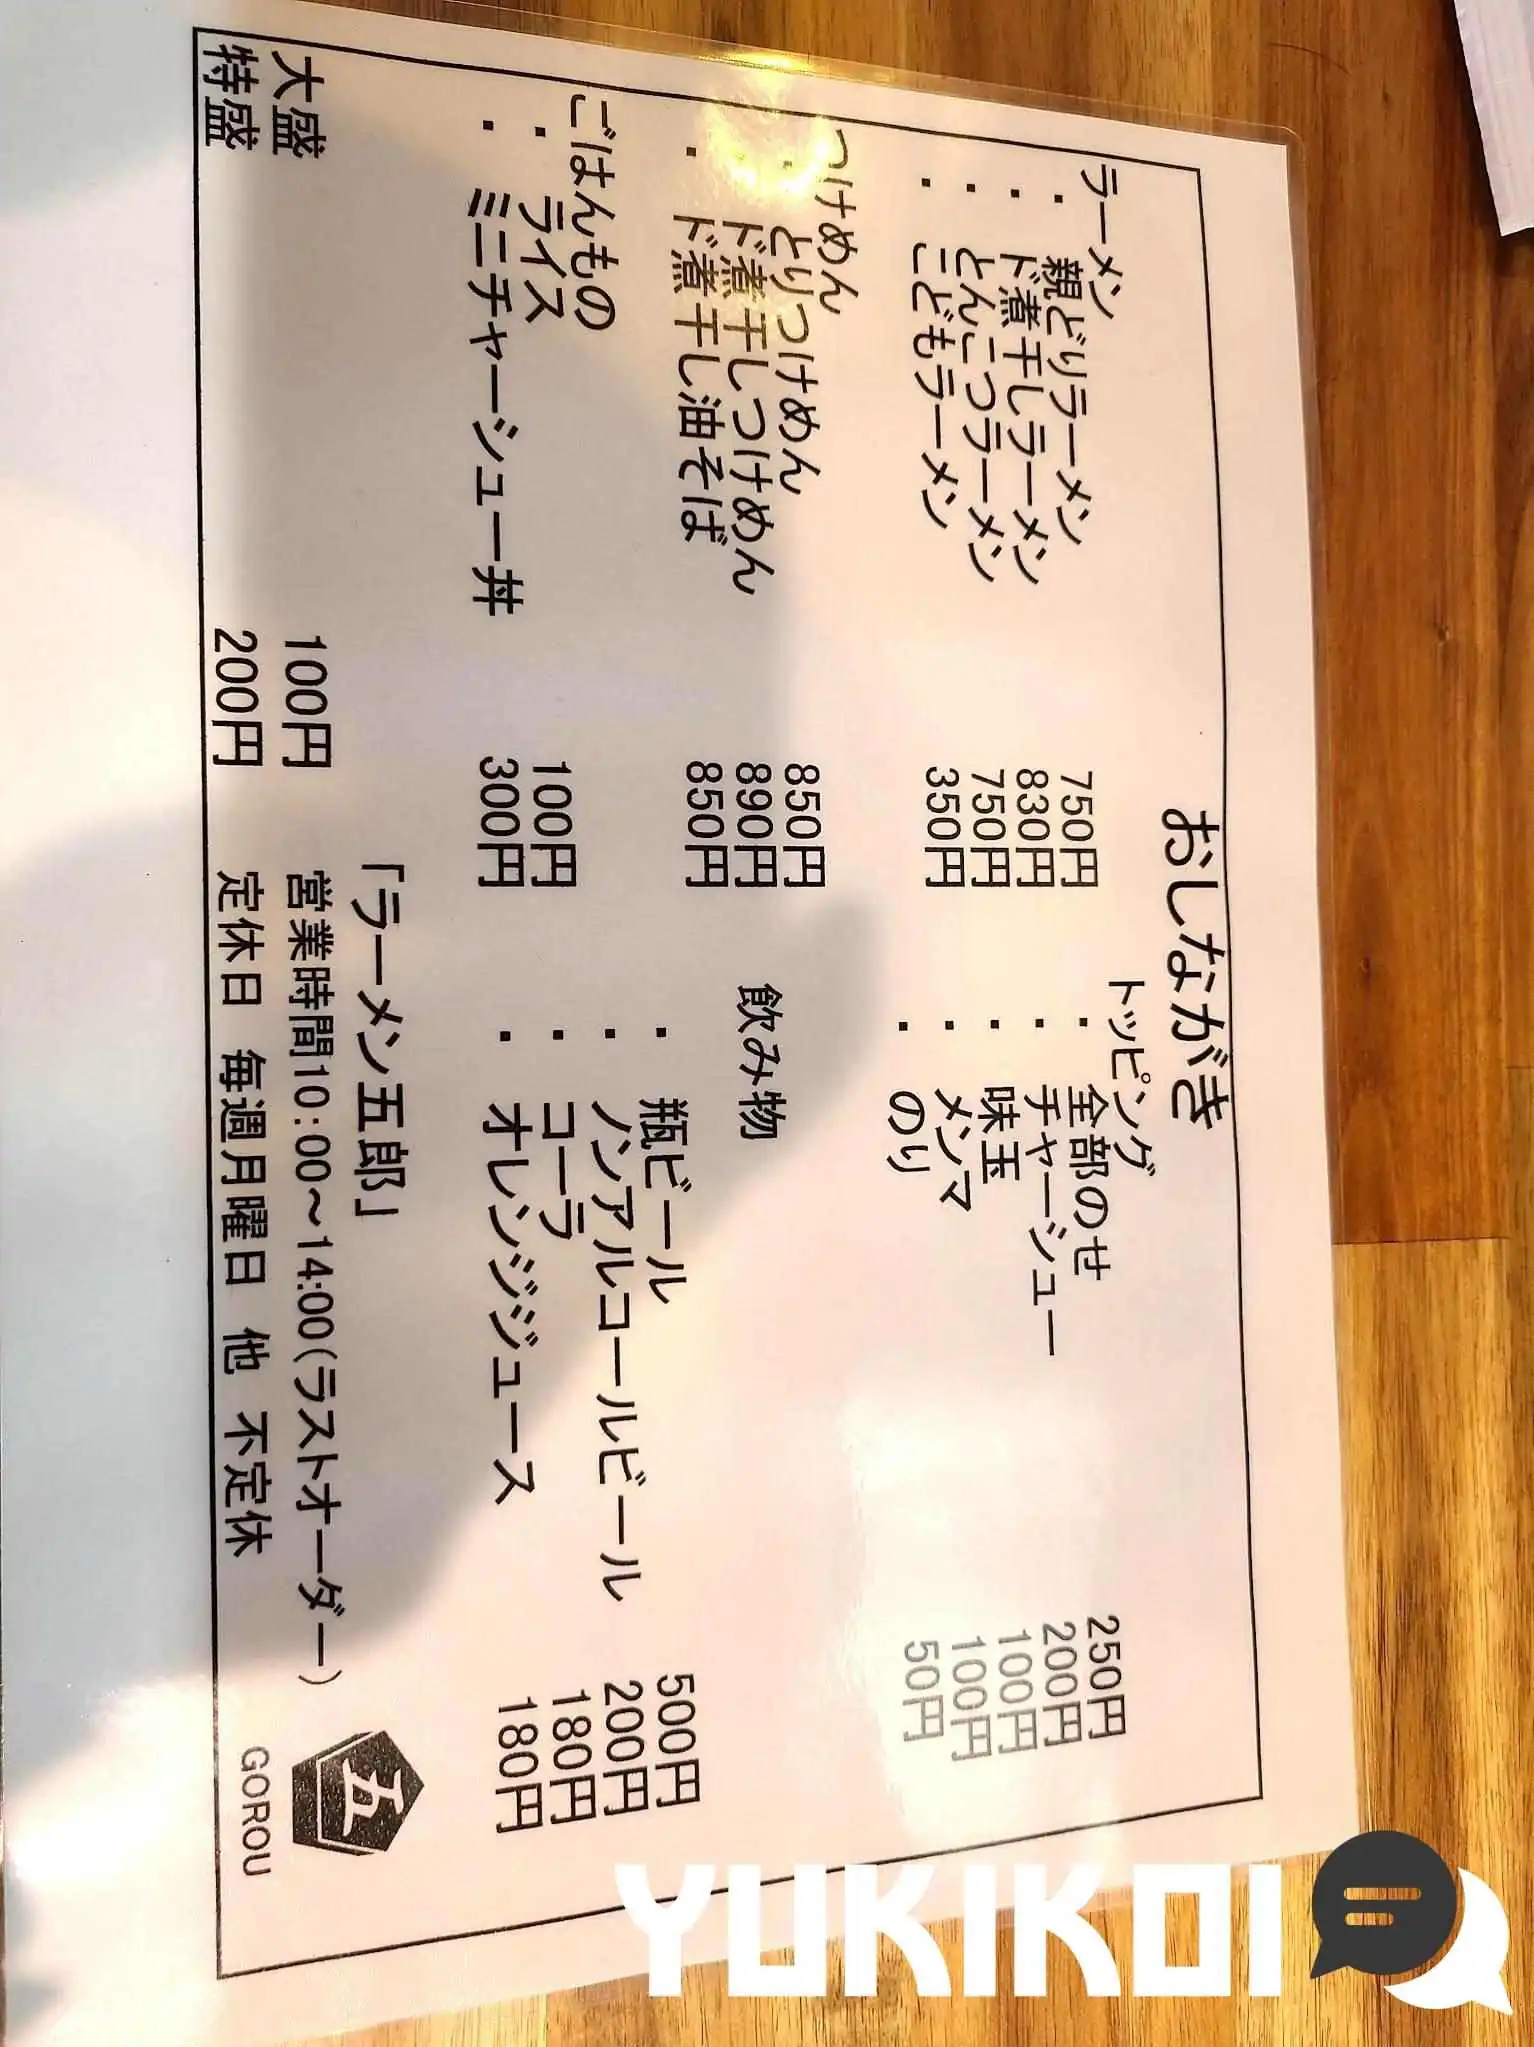 おしながき
ラーメン
・ 親どりラーメン 750円
・ ド煮干しラーメン 830円
・ とんこつラーメン 750円
・ こどもラーメン 350円
つけめん
・ とりつけめん 850円
・ ド煮干しつけめん 890円
・ ド煮干し油そば 850円
ごはんもの
・ ライス 100円
・ ミニチャーシュー丼 300円
大盛 100円
特盛 200円
トッピング
・ 全部のせ 250円
・ チャーシュー 200円
・ 味玉 100円
・ メンマ 100円
・ のり 50円
飲み物
・ 瓶ビール 500円
・ ノンアルコールビール 200円
・ コーラ 180円
・ オレンジジュース 180円
「ラーメン五郎」
営業時間10:00～14:00(ラストオーダー)
定休日 毎週月曜日 他 不定休
五
GOROU
YUKIKOI